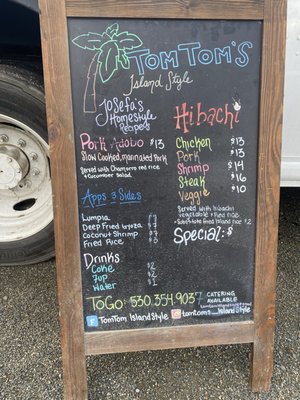 TomTom's
Island Style
Josefa's
Homestyle
Recipes
Pork Adobo $13
Slow Cooked, marinated Pork
Served with Chamorro red rice
+ Cucumber salad
Apps & Sides
Lumpia
Deep Fried Gyoza
Coconut Shrimp
Fried Rice
Drinks
Coke $2
7up $2
Water $1
Hibachi
Chicken $13
Pork $13
Shrimp $14
Steak $16
Veggie $10
Served with hibachi
vegetable + fried rice
Substitute Fried Island rice $2
Special: $
ToGo: 530.354.9057
Catering
Available
TomTom Island Style
tomtoms_Island Style